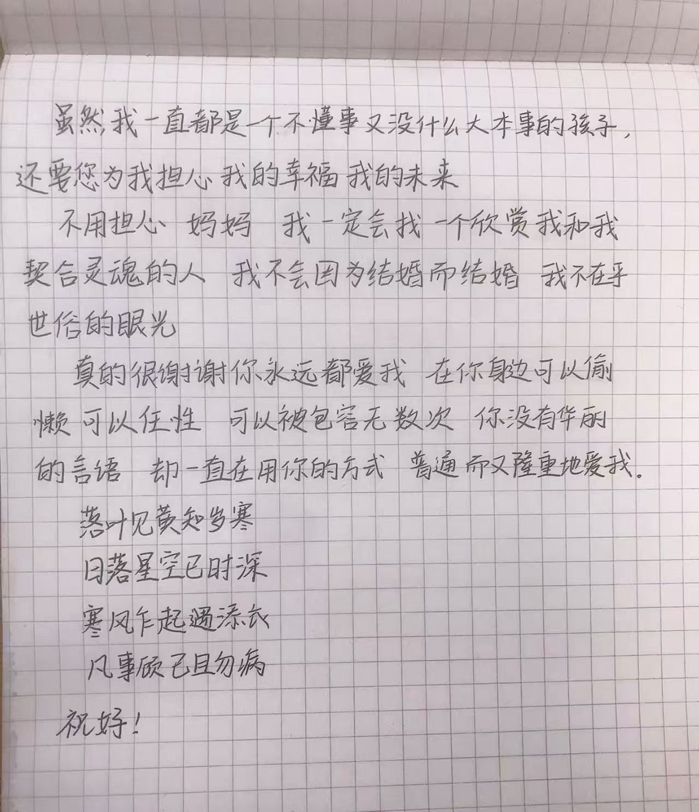 虽然我一直都是一个不懂事又没什么大本事的孩子，
还要您为我担心 我的幸福 我的未来
不用担心 妈妈 我一定会找一个欣赏我和我
契合灵魂的人 我不会因为结婚而结婚 我不在乎
世俗的眼光
真的很谢谢你永远都爱我 在你身边可以偷
懒 可以任性 可以被包容无数次 你没有华丽
的言语 却一直在用你的方式 普通而又隆重地爱我.
落叶见黄知岁寒
日落星空已时深
寒风乍起遇添衣
凡事顾己且勿病
祝好!